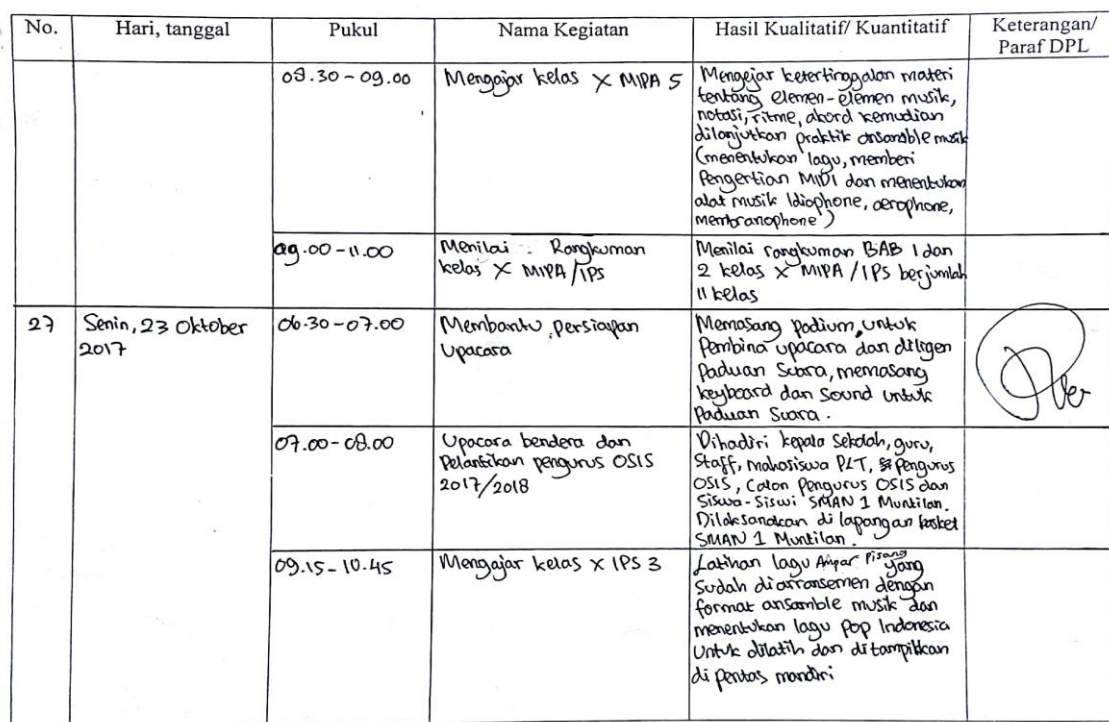 No. Hari, tanggal Pukul Nama Kegiatan Hasil Kualitatif/ Kuantitatif Keterangan/
Paraf DPL
08.30 - 09.00 Mengajar kelas X MIPA 5 Mengejar ketertinggalan materi
tentang elemen-elemen musik,
notasi, ritme, akord kemudian
dilanjutkan praktik ansamble musik
(menentukan lagu, memberi
Pengertian MIDI dan menentukan
alat musik Idiophone, aerophone,
membranophone)
09.00 - 11.00 Menilai : Rangkuman Menilai rangkuman BAB 1 dan
kelas X MIPA/IPS 2 kelas X MIPA / IPS berjumlah
11 kelas
27 Senin, 23 Oktober 06.30 - 07.00 Membantu persiapan Memasang podium, untuk
2017 Upacara Pembina upacara dan diligen
Paduan Suara, memasang
keyboard dan Sound untuk
Paduan Suara.
07.00 - 08.00 Upacara bendera dan Dihadiri kepala Sekolah, guru,
Pelantikan pengurus OSIS Staff, mahasiswa PLT, pengurus
2017/2018 OSIS, Calon Pengurus OSIS dan
Siswa-Siswi SMAN 1 Muntilan.
Dilaksanakan di lapangan basket
SMAN 1 Muntilan.
09.15 - 10.45 Mengajar kelas X IPS 3 Latihan lagu Ampar Pisang yang
Sudah diarransemen dengan
format ansamble musik dan
menentukan lagu Pop Indonesia
Untuk dilatih dan ditampilkan
di pentas mandiri